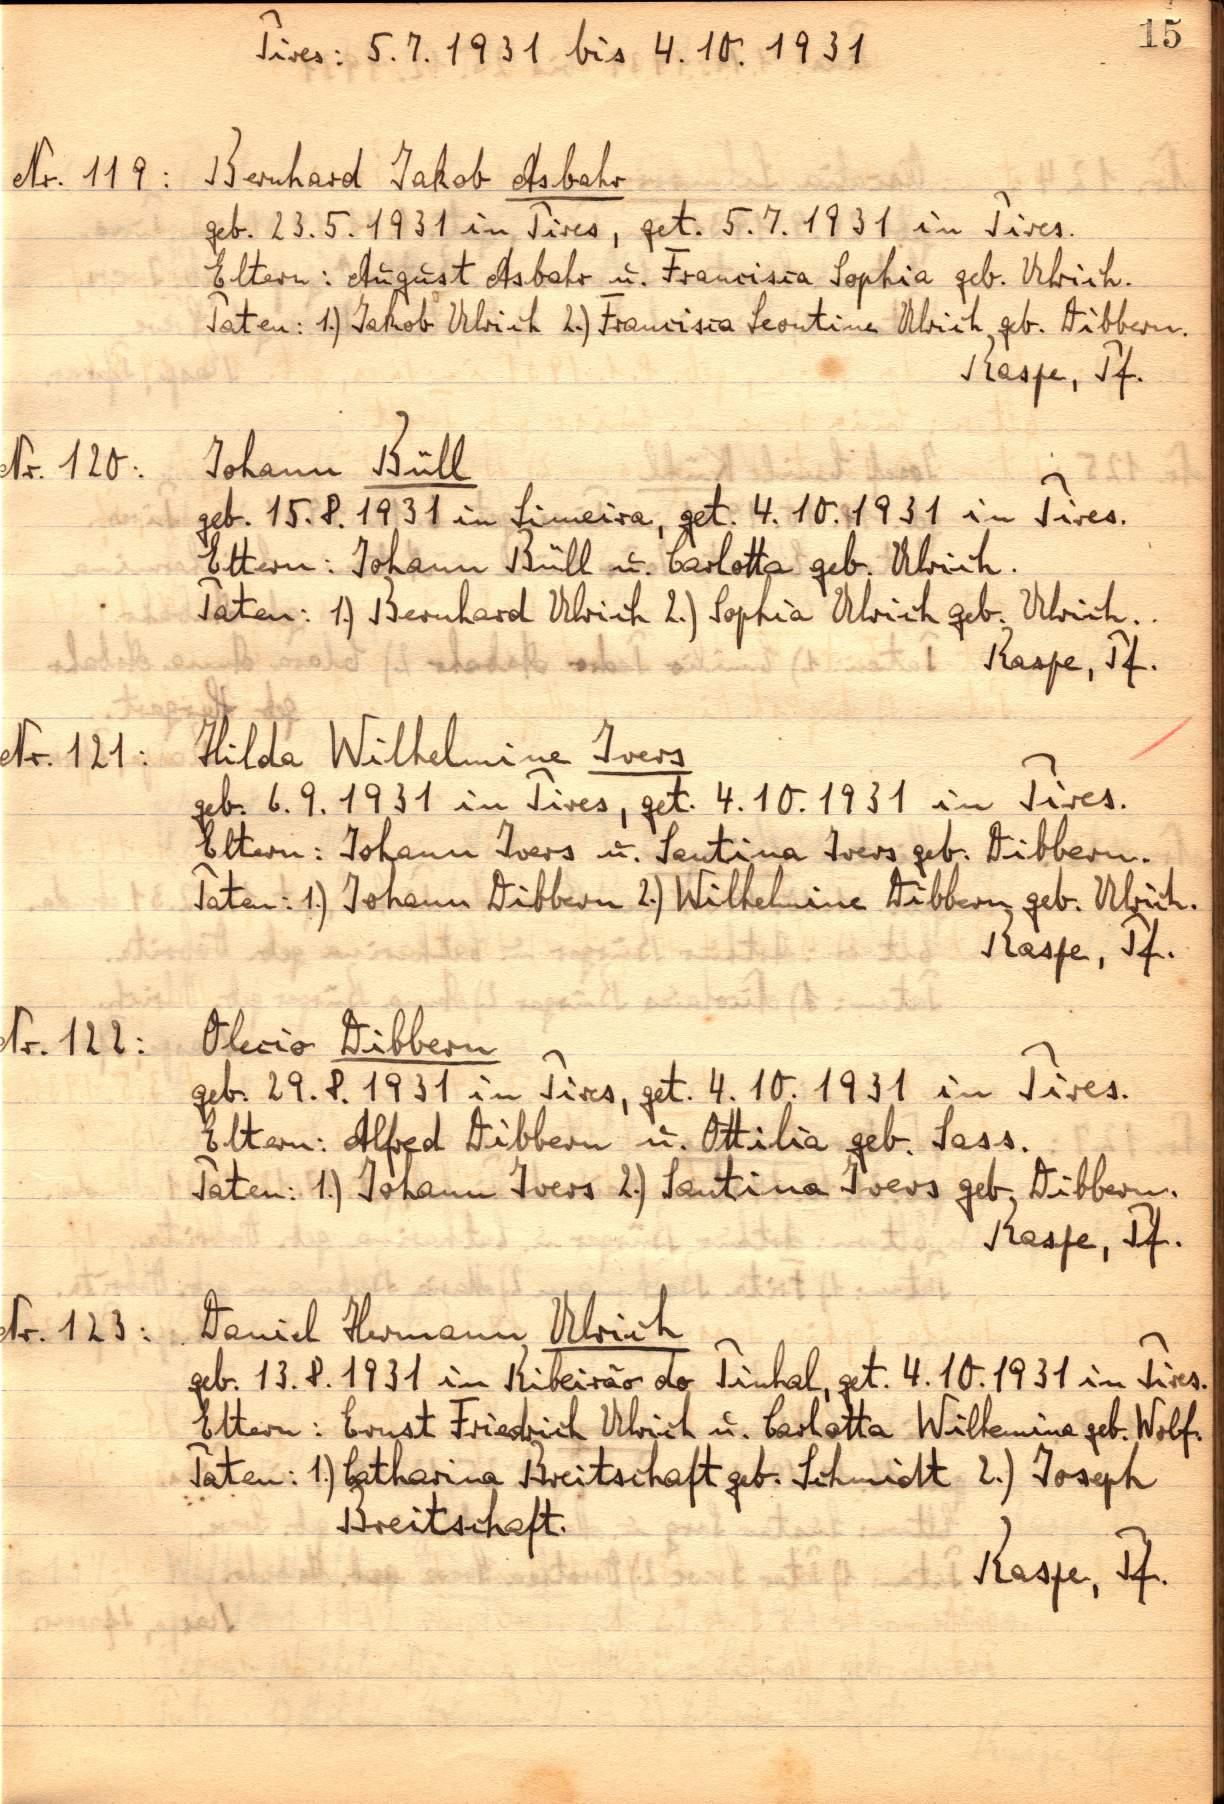 15
Pires: 5.7.1931 bis 4.10.1931
Nr. 119: Bernhard Jakob Asbahr
geb. 23.5.1931 in Pires, get. 5.7.1931 in Pires.
Eltern: August Asbahr u. Francisca Sophia geb. Ulrich.
Paten: 1.) Jakob Ulrich 2.) Francisca Leontine Ulrich geb. Dibbern.
Raspe, Pf.
Nr. 120: Johann Büll
geb. 15.8.1931 in Limeira, get. 4.10.1931 in Pires.
Eltern: Johann Büll u. Carlotta geb. Ulrich.
Paten: 1.) Bernhard Ulrich 2.) Sophia Ulrich geb. Ulrich.
Raspe, Pf.
Nr. 121: Hilda Wilhelmine Ivers
geb. 6.9.1931 in Pires, get. 4.10.1931 in Pires.
Eltern: Johann Ivers u. Santina Ivers geb. Dibbern.
Paten: 1.) Johann Dibbern 2.) Wilhelmine Dibbern geb. Ulrich.
Raspe, Pf.
Nr. 122: Olecio Dibbern
geb. 29.8.1931 in Pires, get. 4.10.1931 in Pires.
Eltern: Alfred Dibbern u. Ottilia geb. Sass.
Paten: 1.) Johann Ivers 2.) Santina Ivers geb. Dibbern.
Raspe, Pf.
Nr. 123: Daniel Hermann Ulrich
geb. 13.8.1931 in Ribeirão do Pinhal, get. 4.10.1931 in Pires.
Eltern: Ernst Friedrich Ulrich u. Carlotta Wilhemina geb. Wolf.
Paten: 1.) Catharina Breitschaft geb. Schmidt 2.) Joseph
Breitschaft.
Raspe, Pf.